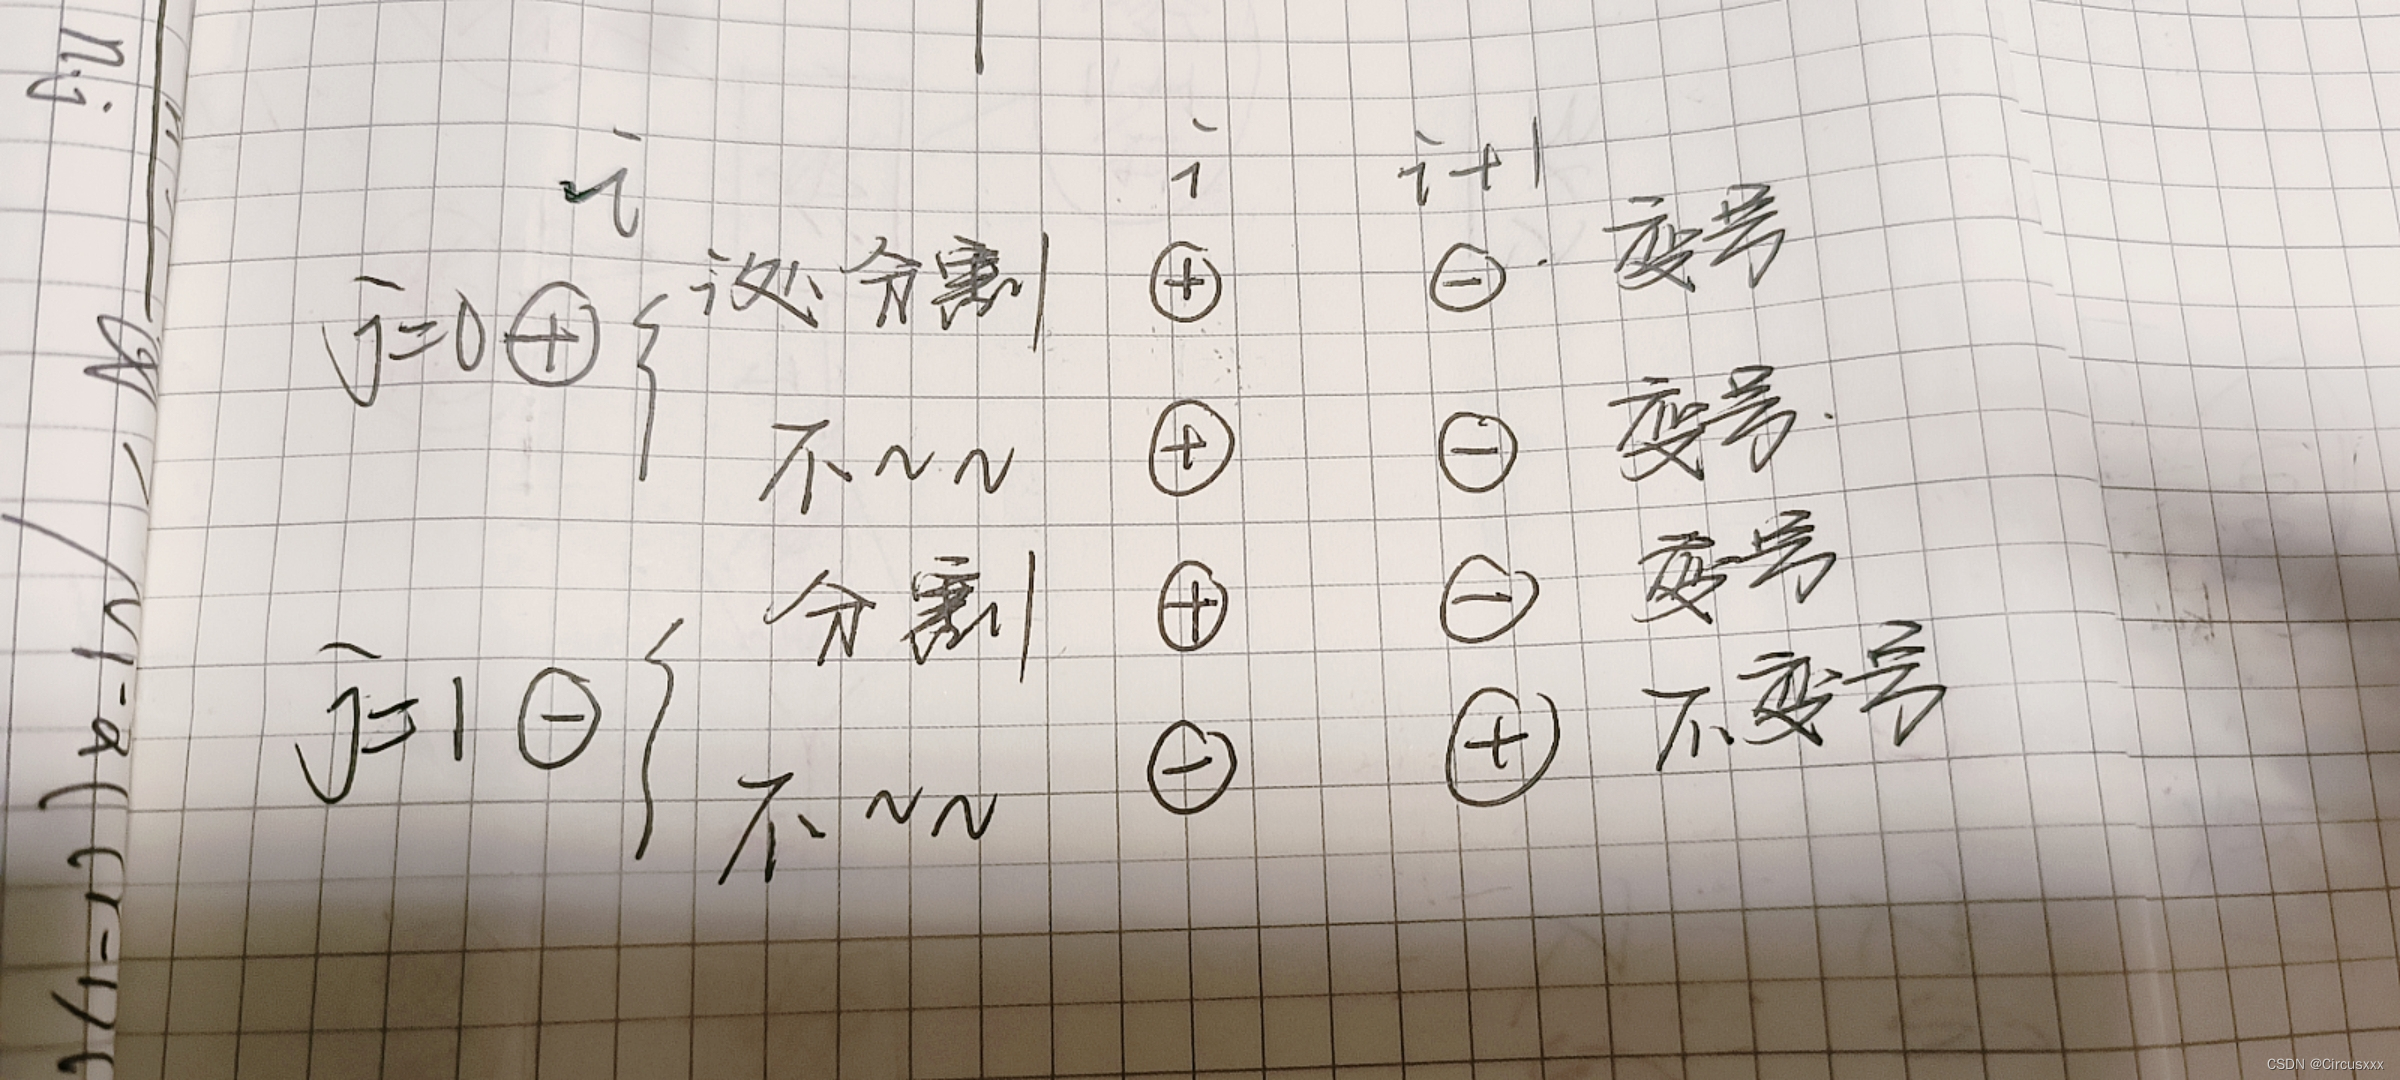 i i i+1
j=0 ⊕ { 这处分割| ⊕ ⊖ 变号
不~~ ⊕ ⊖ 变号
j=1 ⊖ { 分割| ⊕ ⊖ 变号
不~~ ⊖ ⊕ 不变号
nj
CSDN @Circusxxx